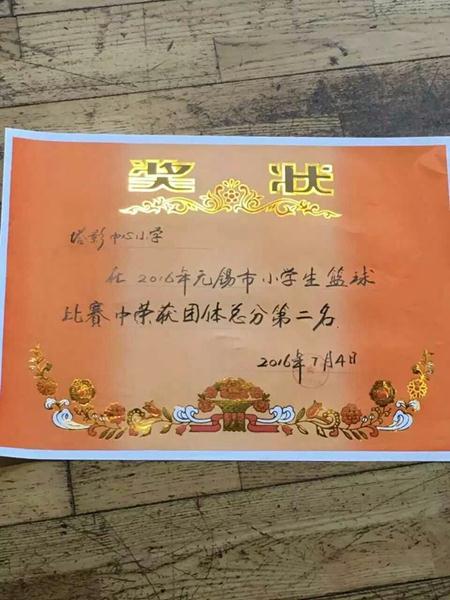 奖状
塔影中心小学
在2016年无锡市小学生篮球
比赛中荣获团体总分第二名
2016年7月4日